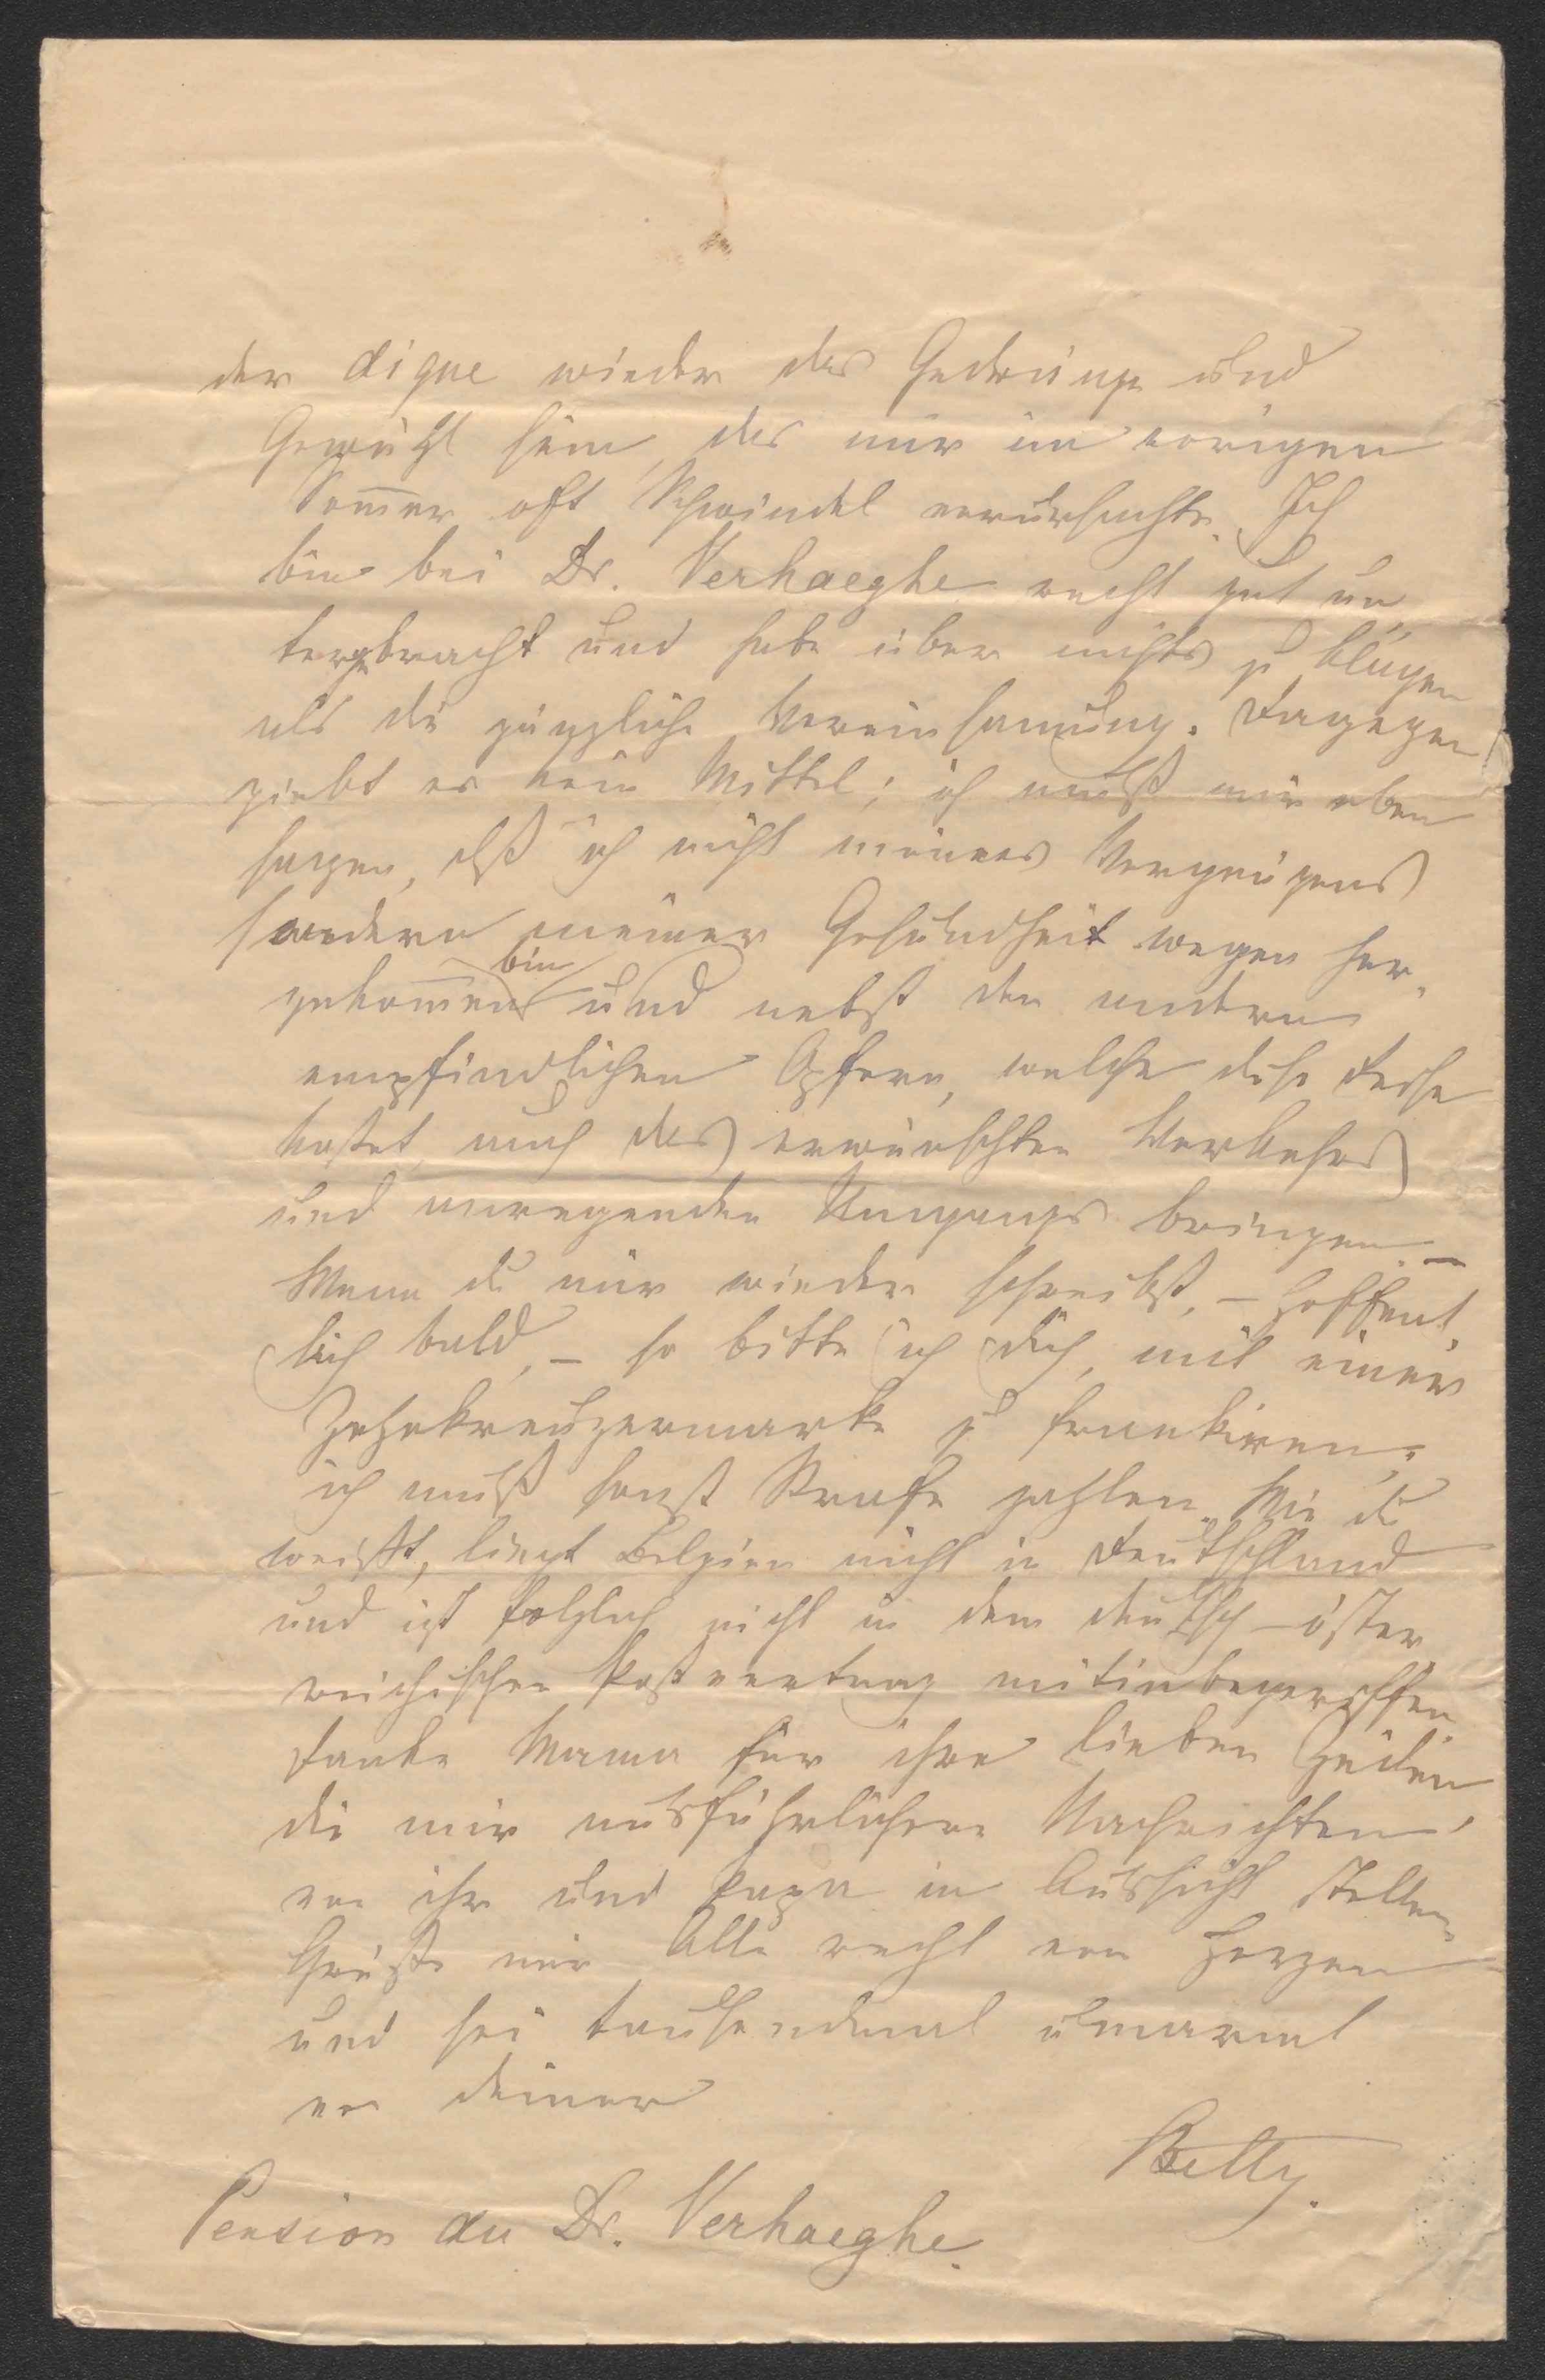 der digue wieder das Gedränge und
Gewühl sein, das mir im vorigen
Som̄er oft Schwindel verursachte. Ich
bin bei Dr. Verhaeghe recht gut un
tergebracht und habe über nichts zu klagen
als die gänzliche Vereinsamung. Dagegen
giebt es kein Mittel; ich muß mir eben
sagen, dß ich nicht meines Vergnügens
sondern meiner Gesundheit wegen her-
gekom̄en bin und nebst den andern
empfindlichen Opfern, welche diese Reise
kostet, auch das erwünschten Verkehrs
und anregenden Umgangs bringen. –
Wenn du mir wieder schreibst, – hoffent-
lich bald, – so bitte ich dich, mit einer
Zehnkreuzermarke zu frankiren;
ich muß sonst Strafe zahlen. Wie du
weißt, liegt Belgien nicht in Deutschland
und ist folglich nicht in dem deutsch-öster
reichischen Postvertrag mitinbegriffen.
Danke Mama für ihre lieben Zeilen,
die mir ausführlichere Nachrichten
von ihr und Papa in Aussicht stellen.
Grüße mir Alle recht von Herzen
und sei tausendmal umarmt
von deiner
Betty.
Pension du Dr. Verhaeghe.